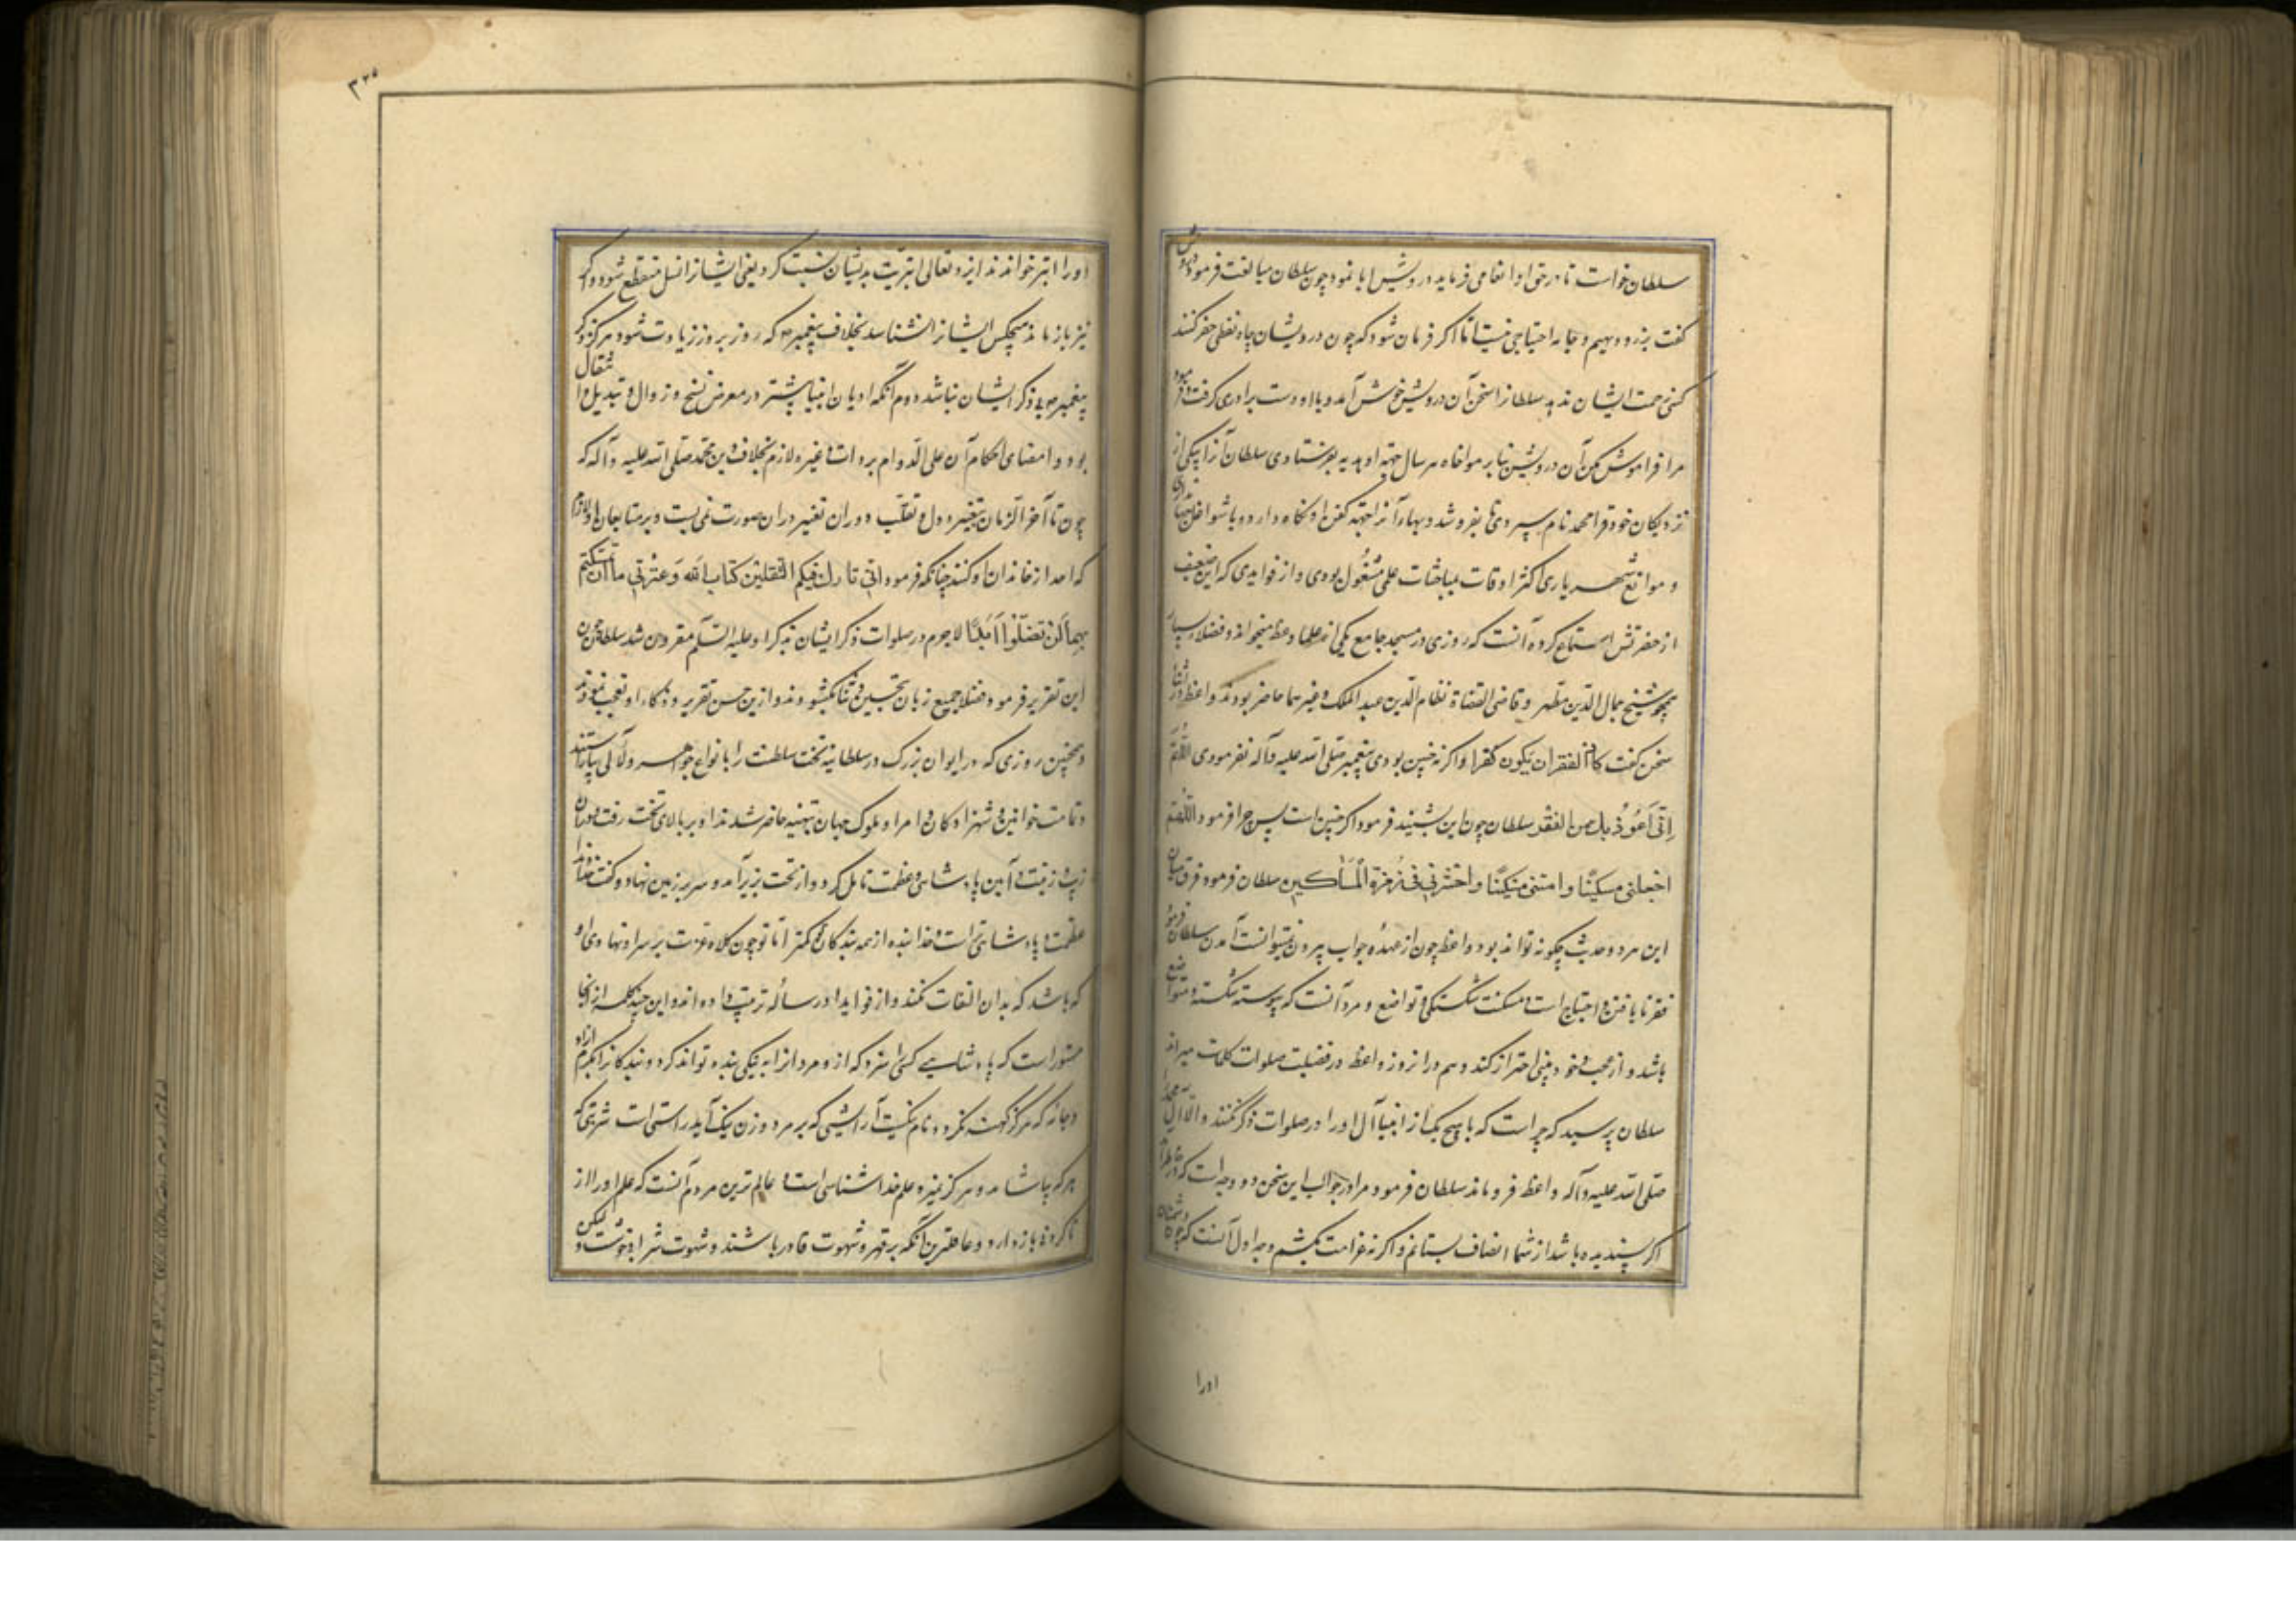 سلطان خواست تا در حق او انعامی فرماید درویش ابا نمود چون سلطان مبالغت فرمود درویش
گفت بزر و سیم و جامه احتیاجی نیست اما اگر فرمان شود که چون درویشان چاه نفطی حفر کنند
کسی زحمت ایشان ندهد سلطانرا سخن آن درویش خوش آمد و با او دست برادری گرفت و فرمود
مرا فراموش مکن آن درویش بنابر مواخاه هر سال جهة او هدیه بفرستادی سلطان آنرا بیکی از
نزدیکان خود قرا محمد نام سپردی تا بفروشد و بهاء آنرا جهة کفن او نگاه دارد و با شواغل جهانداری
و موانع شهریاری اکثر اوقات بمباحثات علمی مشغول بودی و از فوایدی که این ضعیف
از حضرتش استماع کرده آنست که روزی در مسجد جامع یکی از علما وعظ میخواند و فضلاء بسیار
همچو شیخ جمال الدین مطهر و قاضی القضاة نظام الدین عبد الملک و غیرهما حاضر بودند واعظ در اثناء
سخن گفت کاد الفقر ان یکون کفرا و اگر نه چنین بودی پیغمبر صلی الله علیه و آله نفرمودی اللهم
انی اعوذ بك من الفقر سلطان چون این بشنید فرمود اگر چنین است پس چرا فرمود اللهم
احینی مسکینا و امتنی مسکینا و احشرنی فی زمرة المساکین سلطان فرمود فرق میان
این هر دو حدیث چگونه تواند بود واعظ چون از عهدهٔ جواب بیرون نمیتوانست آمدن سلطان فرمود
فقر نایافتن و احتیاج است و مسکنت شکستگی و تواضع و مرد آنست که پیوسته شکسته و متواضع
باشد و از عجب و خود بینی احتراز کند و هم در آنروز واعظ در فضیلت صلوات کلمات میراند
سلطان پرسید که چراست که با هیچ یک از انبیا آل او را در صلوات ذکر نکنند و الا آل محمد
صلی الله علیه و آله واعظ فرو ماند سلطان فرمود مرا در جواب این سخن دو وجه است که در خاطر آمد
اگر پسندیده باشد از شما انصاف بستانم و اگر نه غرامت بکشم وجه اول آنست که چون دشمنان
اورا
۳۲۵
او را ابتر خواندند ایزد تعالی ابتریت بدیشان نسبت کرد یعنی ایشانرا نسل منقطع شود و اگر
نیز باز ماند هیچکس ایشانرا نشناسد بخلاف پیغمبر ص که روز بروز زیادت شود و هرگز ذکر
پیغمبر ص بی ذکر ایشان نباشد دوم آنکه ادیان انبیا پیشتر در معرض نسخ و زوال و تبدیل و انتقال
بود و امضای احکام آن علی الدوام بر وات غیر و لازم بخلاف دین محمد صلی الله علیه و آله که
چون تا آخر الزمان بتغییر دول و تقلب دوران تغییر در آن صورت نمی بست و بر متابعان او لازم
که امداد از خاندان او کنند چنانکه فرمود انی تارك فیکم الثقلین کتاب الله و عترتی ما ان تمسکتم
بهما لن تضلوا ابدا لاجرم در صلوات ذکر ایشان بذکر او علیه السلم مقرون شد سلطان چون
این تقریر فرمود فضلا جمیع زبان بتحسین و ثنا بگشودند و ازین حسن تقریر و ذکاء او تعجب نمودند
و همچنین روزی که در ایوان بزرگ در سلطانیه تخت سلطنت را بانواع جواهر و لآلی بیاراستند
و تمامت خواتین و شهزادگان و امرا و ملوک جهان بتهنیه حاضر شدند او بر بالای تخت رفت و در آن
زیب و زینت و آیین پادشاهی و عظمت تامل کرد و از تخت بزیر آمد و سر بر زمین نهاد و گفت خداوندا
عظمت و پادشاهی تراست و خدا بنده از همه بندگان تو کمتر اما تو چون کلاه عزت بر سر او نهادی او
که باشد که بدان التفات نکند و از فواید او رساله ترتیب داده اند و این چند کلمه از آنجا
مستور است که پادشاهی کسی را سزد که آزاد مردانرا به نیکی بنده تواند کرد و بندگانرا بکرم آزاد
و جامه که هرگز کهنه نگردد نام نیکست آرایشی که بر مرد و زن نیک آید راستی است شربتی که
هر که بیاشامد هرگز نمیرد علم خداشناسی است و عالم ترین مردم آنست که علم او را از
ناکردنی باز دارد و عاقلترین آنکه بر قهر و شهوت قادر باشند و شهوت شراب خوشست و لیکن